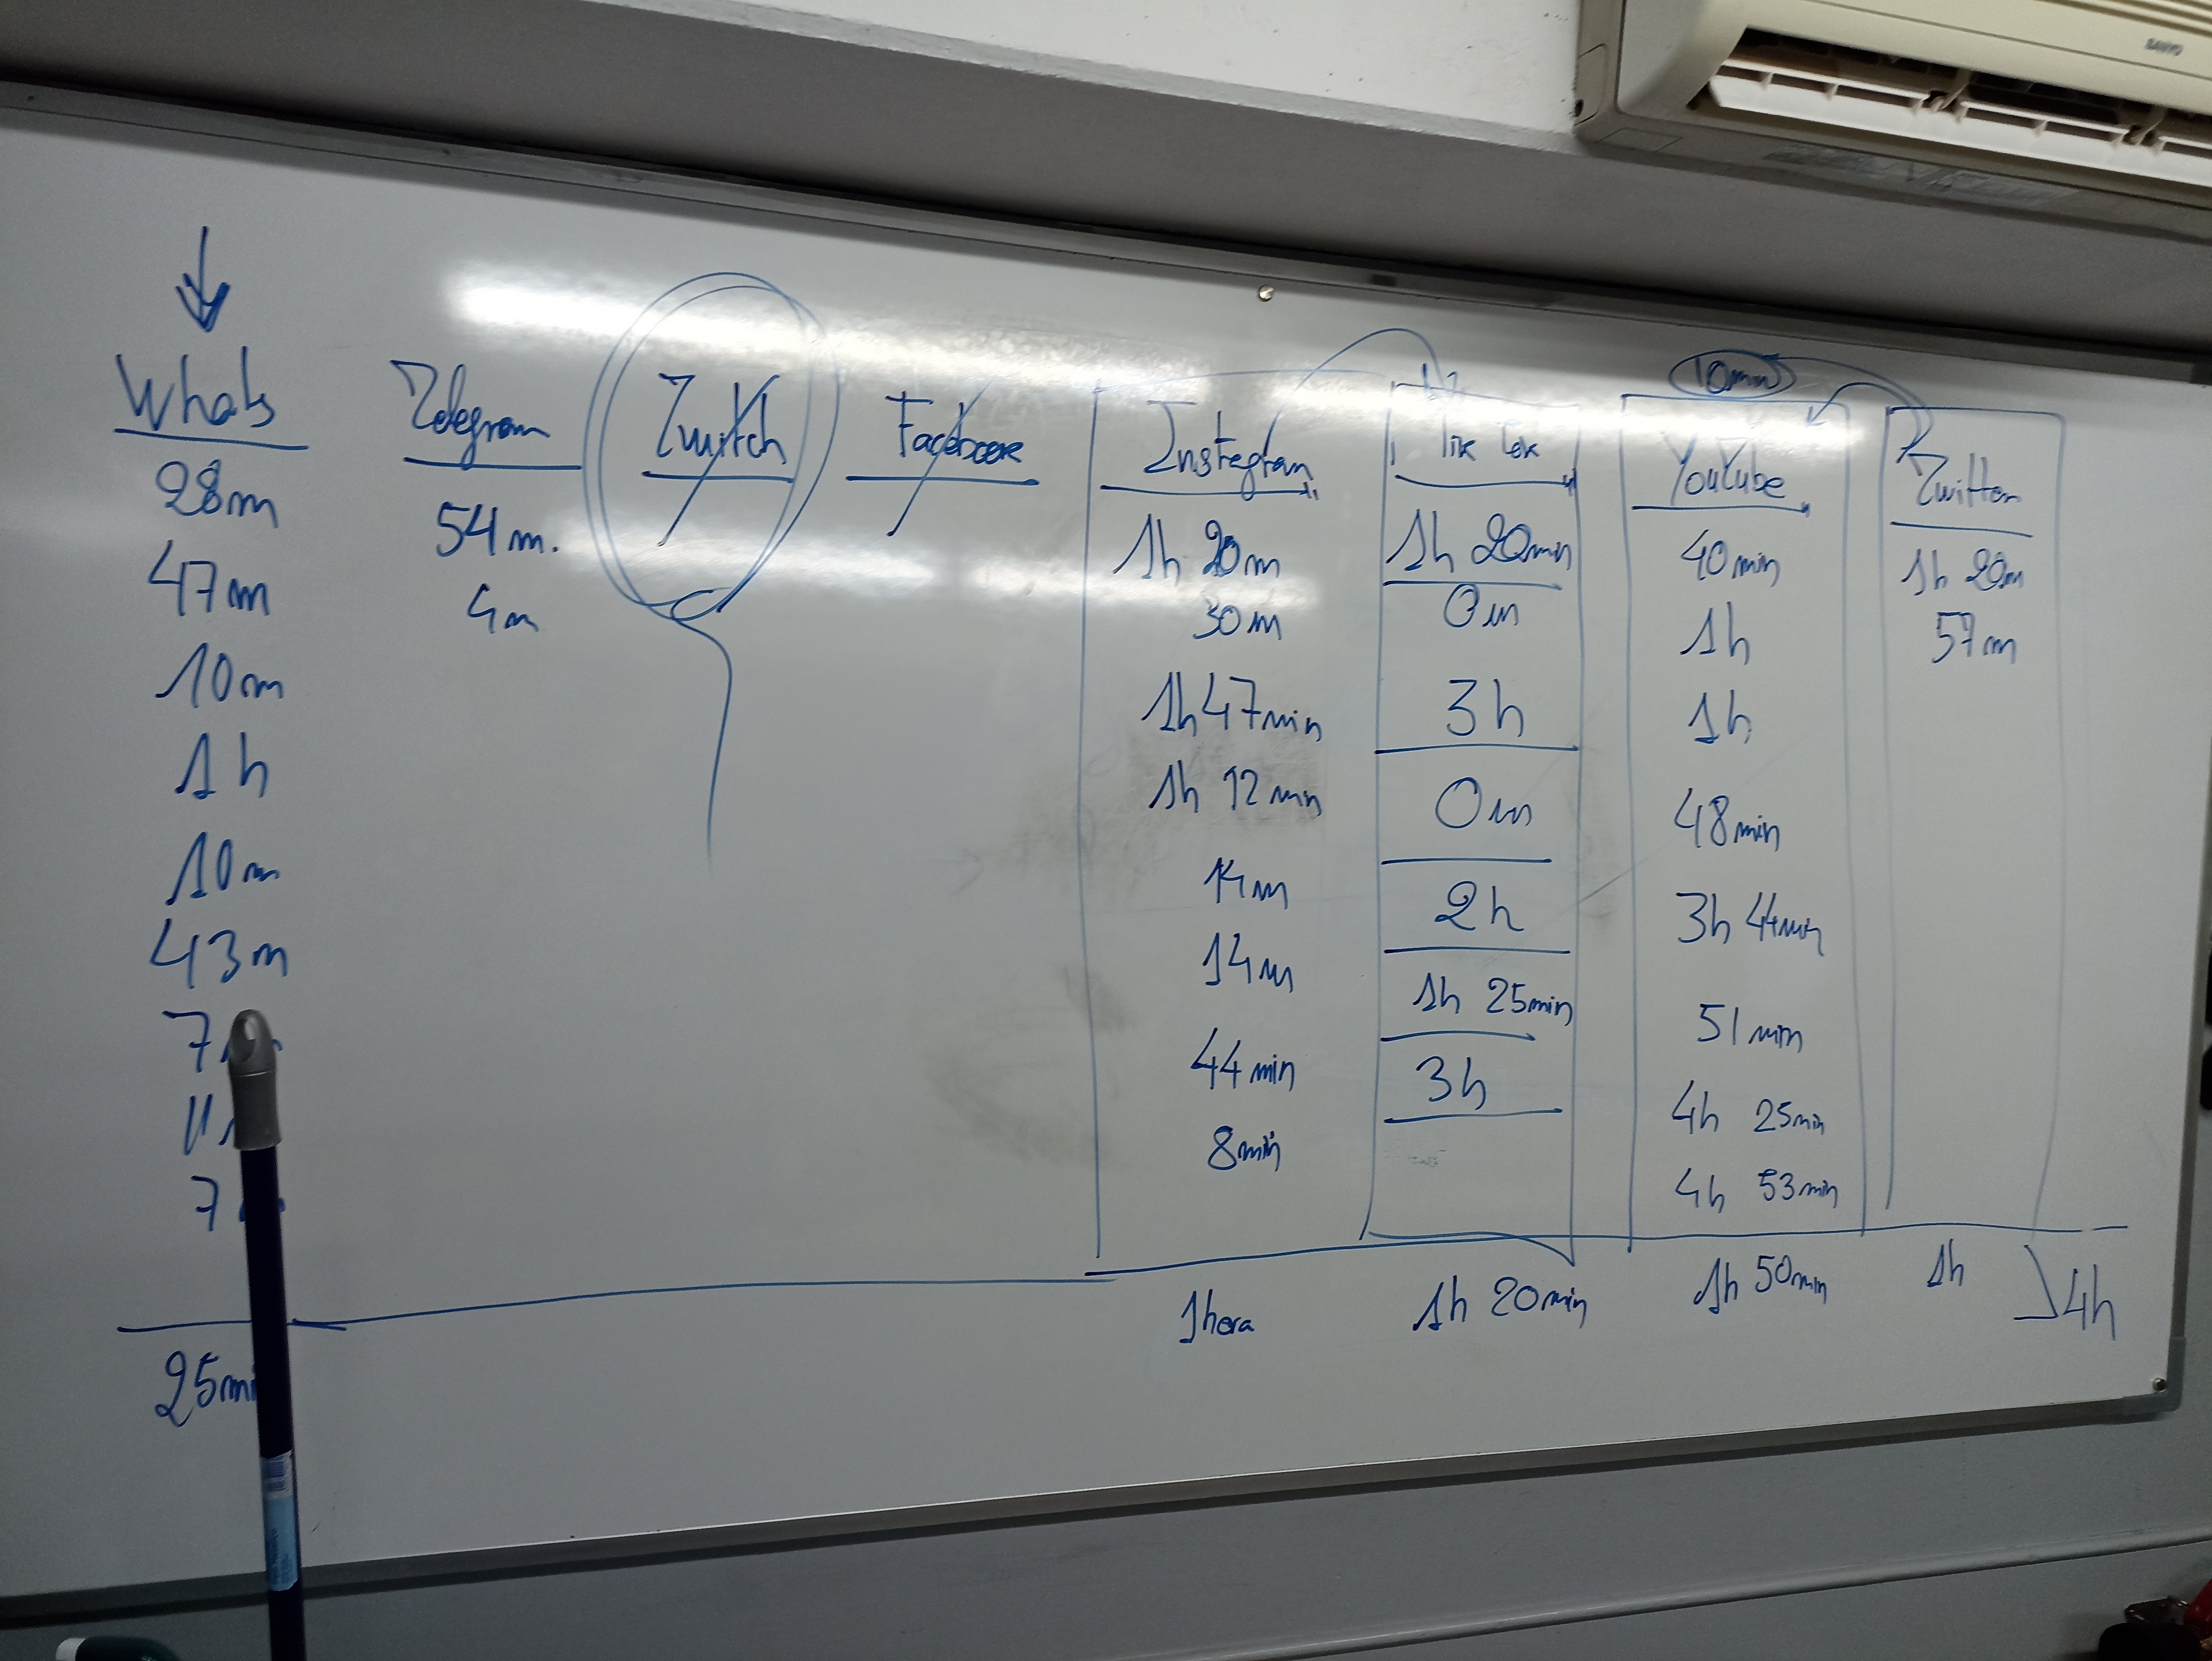 SANYO
10min
Whats Telegram Twitch Facebook Instagram Tik Tok YouTube Twitter
28m 54m. 1h 20m 1h 20min 40min 1h 20m
47m 4m 30m 0m 1h 57m
10m 1h 47min 3h 1h
1h 1h 12min 0m 48min
10m 14m 2h 3h 44min
43m 14m 1h 25min 51min
7 44min 3h 4h 25min
11 8min 4h 53min
7
25mi 1hora 1h 20min 1h 50min 1h 4h